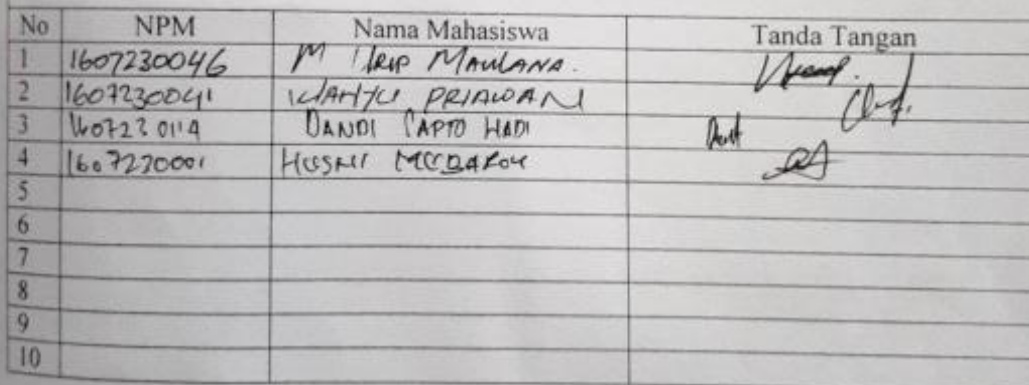 No NPM Nama Mahasiswa Tanda Tangan
1 1607230046 M MAULANA.
2 1607230041 WAHYU PRIAWAN
3 1607230114 DANDI SAPTO HADI
4 1607230001 HUSNI MUBAROK
5
6
7
8
9
10